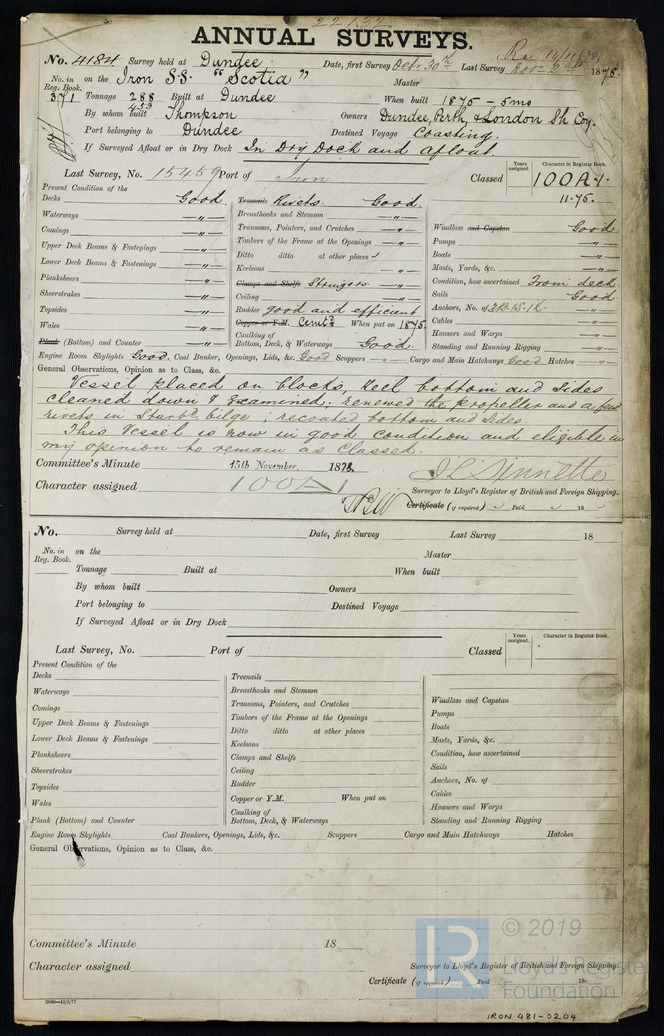 ANNUAL SURVEYS.
No. 4184 Survey held at Dundee Date, first Survey Oct. 30th Last Survey Nov. 2nd 1878.
No. in Reg. Book. on the Iron S.S. "Scotia" Master
371 Tonnage 288 Built at Dundee When built 1875 - 5mo
453
By whom built Thompson Owners Dundee, Perth, & London Sh. Coy.
Port belonging to Dundee Destined Voyage Coasting.
If Surveyed Afloat or in Dry Dock In Dry Dock and afloat.
Last Survey, No. 15459 Port of Classed Years assigned. Character in Register Book.
100A1.
11.75.
Present Condition of the
Decks Good. Treenails Rivets. Good.
Waterways " Breasthooks and Stemson "
Comings " Transoms, Pointers, and Crutches " Windlass and Capstan Good
Upper Deck Beams & Fastenings " Timbers of the Frame at the Openings " Pumps "
Lower Deck Beams & Fastenings " Ditto ditto at other places " Boats "
Plankshears " Keelsons " Masts, Yards, &c. "
Sheerstrakes " Clamps and Shelfs Stringers " Condition, how ascertained From deck
Topsides " Ceiling " Sails Good
Wales " Rudder good and efficient Anchors, No. of 3B.1S.1K.
Plank (Bottom) and Counter " Copper or Y.M. Cemt. When put on 1875. Cables "
Caulking of Bottom, Deck, & Waterways Good. Hawsers and Warps "
Standing and Running Rigging "
Engine Room Skylights Good. Coal Bunker, Openings, Lids, &c. Good Scuppers " Cargo and Main Hatchways Good Hatches "
General Observations, Opinion as to Class, &c.
Vessel placed on blocks, Keel bottom and sides
cleaned down & Examined; renewed the propeller and a few
rivets in Starbd bilge; recoated bottom and Sides.
This Vessel is now in good condition and eligible in
my opinion to remain as Classed.
Committee's Minute 15th November, 1878.
Character assigned 100A1
Surveyor to Lloyd's Register of British and Foreign Shipping.
Certificate (if required) Paid 18
No. Survey held at Date, first Survey Last Survey 18
No. in Reg. Book. on the Master
Tonnage Built at When built
By whom built Owners
Port belonging to Destined Voyage
If Surveyed Afloat or in Dry Dock
Last Survey, No. Port of Classed Years assigned. Character in Register Book.
Present Condition of the
Decks Treenails
Waterways Breasthooks and Stemson Windlass and Capstan
Comings Transoms, Pointers, and Crutches Pumps
Upper Deck Beams & Fastenings Timbers of the Frame at the Openings Boats
Lower Deck Beams & Fastenings Ditto ditto at other places Masts, Yards, &c.
Plankshears Keelsons Condition, how ascertained
Sheerstrakes Clamps and Shelfs Sails
Topsides Ceiling Anchors, No. of
Wales Rudder Cables
Plank (Bottom) and Counter Copper or Y.M. When put on Hawsers and Warps
Caulking of Bottom, Deck, & Waterways Standing and Running Rigging
Engine Room Skylights Coal Bunkers, Openings, Lids, &c. Scuppers Cargo and Main Hatchways Hatches
General Observations, Opinion as to Class, &c.
Committee's Minute 18
Character assigned Surveyor to Lloyd's Register of British and Foreign Shipping.
Certificate (if required) Paid 18
© 2019
LR Lloyd's Register
Foundation
IRON 481-0204